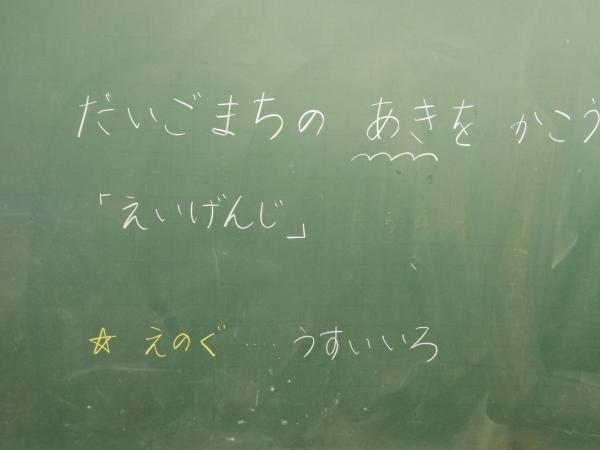 だいごまちの あきを かこう
「えいげんじ」
☆ えのぐ ‥‥ うすいいろ